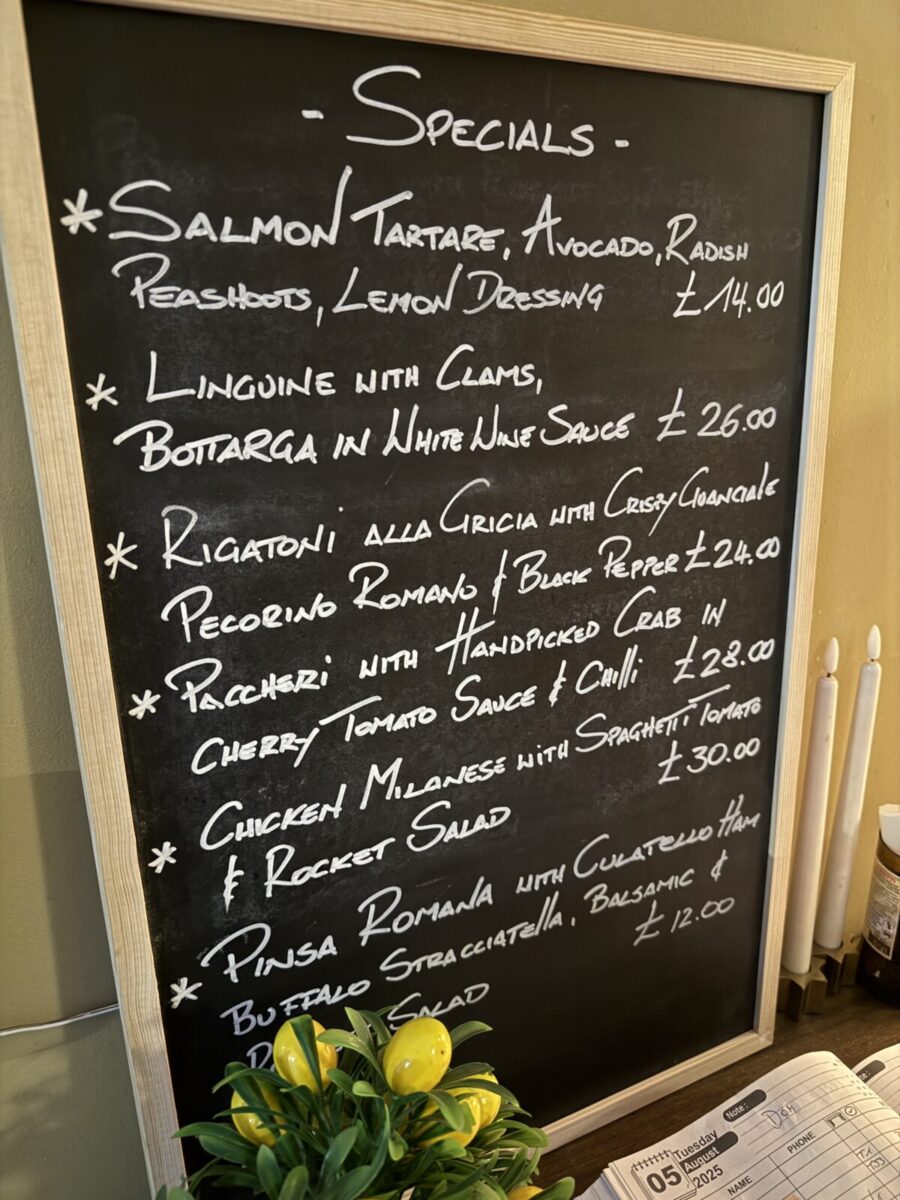 - SPECIALS -
* SALMON TARTARE, AVOCADO, RADISH
PEASHOOTS, LEMON DRESSING £14.00
* LINGUINE WITH CLAMS,
BOTTARGA IN WHITE WINE SAUCE £26.00
* RIGATONI ALLA GRICIA WITH CRISPY GUANCIALE
PECORINO ROMANO & BLACK PEPPER £24.00
* PACCHERI WITH HANDPICKED CRAB IN
CHERRY TOMATO SAUCE & CHILLI £28.00
* CHICKEN MILANESE WITH SPAGHETTI TOMATO
& ROCKET SALAD £30.00
* PINSA ROMANA WITH CULATELLO HAM
BUFFALO STRACCIATELLA, BALSAMIC &
SALAD £12.00
Note:
05 Tuesday
August
2025
NAME PHONE